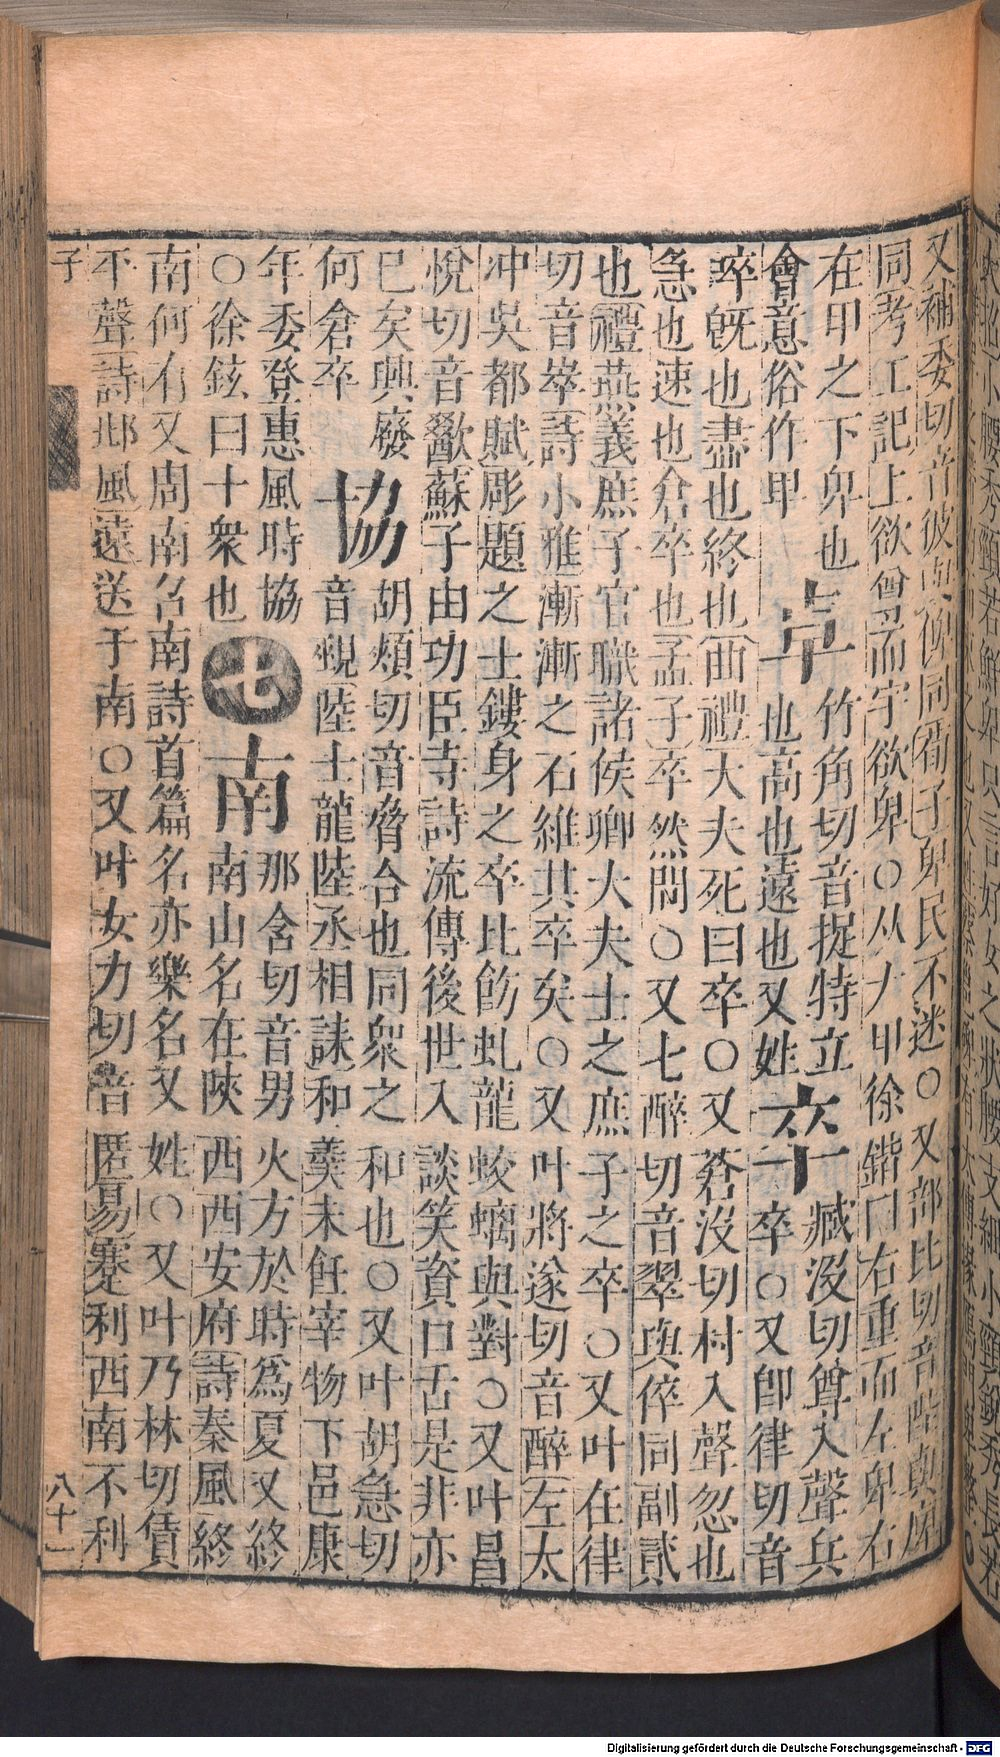 又補委切音彼與俾同荀子卑民不迷○又部比切音陛與庳
同考工記上欲尊而宇欲卑○从𠂇甲徐鍇曰右重而左卑右
在甲之下卑也
會意俗作甲
卓
竹角切音捉特立
也高也遠也又姓
卒
臧沒切尊入聲兵
卒○又卽律切音
啐旣也盡也終也曲禮大夫死曰卒○又蒼沒切村入聲忽也
急也速也倉卒也孟子卒然問○又七醉切音翠與倅同副貳
也禮燕義庶子官職諸侯卿大夫士之庶子之卒○又叶在律
切音崒詩小雅漸漸之石維其卒矣○又叶將遂切音醉左太
冲吳都賦彫題之士鏤身之卒比飭虬龍蛟螭與對○又叶昌
悅切音歠蘇子由功臣寺詩流傳後世人談笑資口舌是非亦
已矣興廢
何倉卒
協
胡頰切音脅合也同衆之和也○又叶胡急切
音陸士龍陸丞相誄和羹未飪宰物下邑康
年委登惠風時協
○徐鉉曰十衆也
七
南
那含切音男火方於時爲夏又終
南山名在陝西西安府詩秦風終
南何有又周南召南詩首篇名亦樂名又姓○又叶乃林切賃
平聲詩邶風遠送于南○又叶女力切音匿易蹇利西南不利
子
八十一
Digitalisierung gefördert durch die Deutsche Forschungsgemeinschaft - DFG